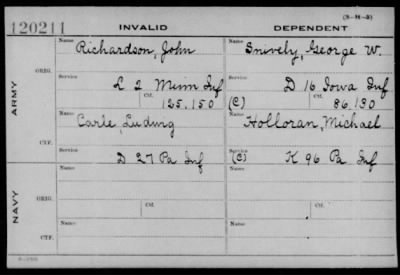 (3-M-3)
120211 INVALID DEPENDENT
Name Richardson, John Name Snively, George W.
ARMY
ORIG.
Service L 2 Minn Inf Service D 16 Iowa Inf
Ctf. 125,150 (C) Ctf. 86,130
Name Carle, Ludwig Name Holloran, Michael
CTF.
Service D 27 Pa Inf Service (C) K 96 Pa Inf
NAVY
Name Name
ORIG.
Ctf. Ctf.
Name Name
CTF.